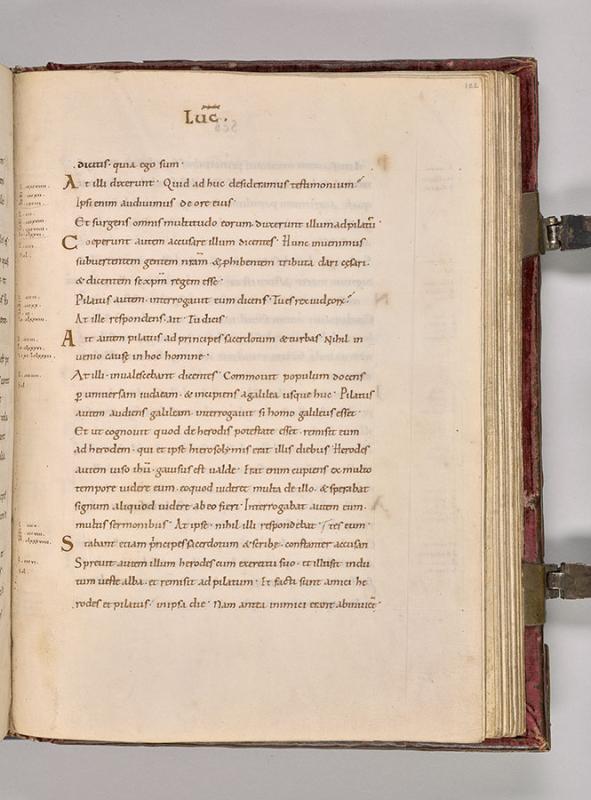 122
Luc.
dicitis · quia ego sum ·
At illi dixerunt · Quid ad huc desideramus testimonium
Ipsi enim audiuimus de ore eius ·
Et surgens omnis multitudo eorum · duxerunt illum ad pilatū ·
Coeperunt autem accusare illum dicentes · Hunc inuenimus
subuertentem gentem nr̄am · & phibentem tributa dari cęsari ·
& dicentem se xp̄m regem esse ·
Pilatus autem · interrogauit eum dicens · Tu es rex iudęorū
At ille respondens · ait · Tu dicis ·
Ait autem pilatus ad principes sacerdotum & turbas · Nihil in
uenio causę in hoc homine ·
At illi · inualescebant dicentes · Commouit populum docens
p uniuersam iudaeam · & incipiens a galilea usque huc · Pilatus
autem audiens galileam · interrogauit si homo galileus esset ·
Et ut cognouit quod de herodis potestate esset · remisit eum
ad herodem · qui et ipse hierosolymis erat illis diebus · Herodes
autem uiso ihū · gauisus est ualde · Erat enim cupiens ex multo
tempore uidere eum · eo quod audiret multa de illo · & sperabat
signum aliquod uidere ab eo fieri · Interrogabat autem eum ·
multis sermonibus · At ipse · nihil illi respondebat ·
Stabant etiam principes sacerdotum & scribę · constanter accusan
Spreuit autem illum herodes cum exercitu suo · et illusit indu
tum ueste alba · et remisit ad pilatum · Et facti sunt amici he
rodes et pilatus · in ipsa die · Nam antea inimici erant ad inuicē ·